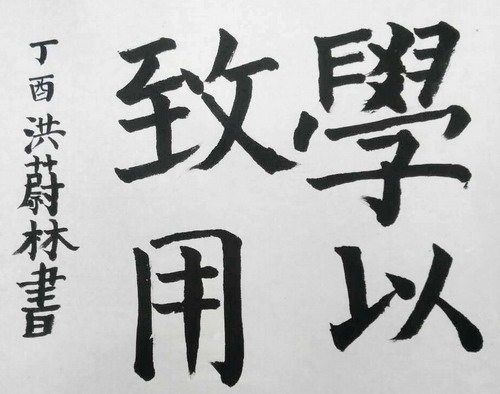 學以
致用
丁酉洪蔚林書